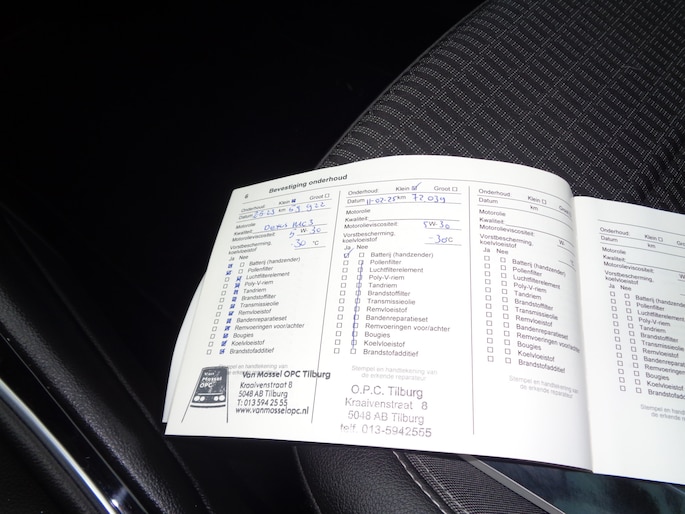 6
Bevestiging onderhoud
Onderhoud Klein Groot
Datum km
Motorolie
Kwaliteit Dexos
Motorolieviscositeit 5 W-30
Vorstbescherming,
koelvloeistof -30 °C
Ja Nee
Batterij (handzender)
Pollenfilter
Luchtfilterelement
Poly-V-riem
Tandriem
Brandstoffilter
Transmissieolie
Remvloeistof
Bandenreparatieset
Remvoeringen voor/achter
Bougies
Koelvloeistof
Brandstofadditief
Van Mossel OPC
Van Mossel OPC Tilburg
Kraaivenstraat 8
5048 AB Tilburg
T: 013 594 25 55
www.vanmosselopc.nl
Onderhoud Klein Groot
Datum 11-07-25 km 72.039
Motorolie
Kwaliteit
Motorolieviscositeit 5W-30
Vorstbescherming,
koelvloeistof -30C
Ja Nee
Batterij (handzender)
Pollenfilter
Luchtfilterelement
Poly-V-riem
Tandriem
Brandstoffilter
Transmissieolie
Remvloeistof
Bandenreparatieset
Remvoeringen voor/achter
Bougies
Koelvloeistof
Brandstofadditief
Stempel en handtekening van
de erkende reparateur
O.P.C. Tilburg
Kraaivenstraat 8
5048 AB Tilburg
telf. 013-5942555
Onderhoud Klein Groot
Datum km
Motorolie
Kwaliteit
Motorolieviscositeit W-
Vorstbescherming,
koelvloeistof
Ja Nee
Batterij (handzender)
Pollenfilter
Luchtfilterelement
Poly-V-riem
Tandriem
Brandstoffilter
Transmissieolie
Remvloeistof
Bandenreparatieset
Remvoeringen voor/achter
Bougies
Koelvloeistof
Brandstofadditief
Stempel en handtekening van
de erkende reparateur
Onderhoud
Datum km
Motorolie
Kwaliteit
Motorolieviscositeit
Vorstbescherming,
koelvloeistof
Ja Nee
Batterij (handzender)
Pollenfilter
Luchtfilterelement
Poly-V-riem
Tandriem
Brandstoffilter
Transmissieolie
Remvloeistof
Bandenreparatieset
Remvoeringen
Bougies
Koelvloeistof
Brandstofadditief
Stempel en handtekening
de erkende